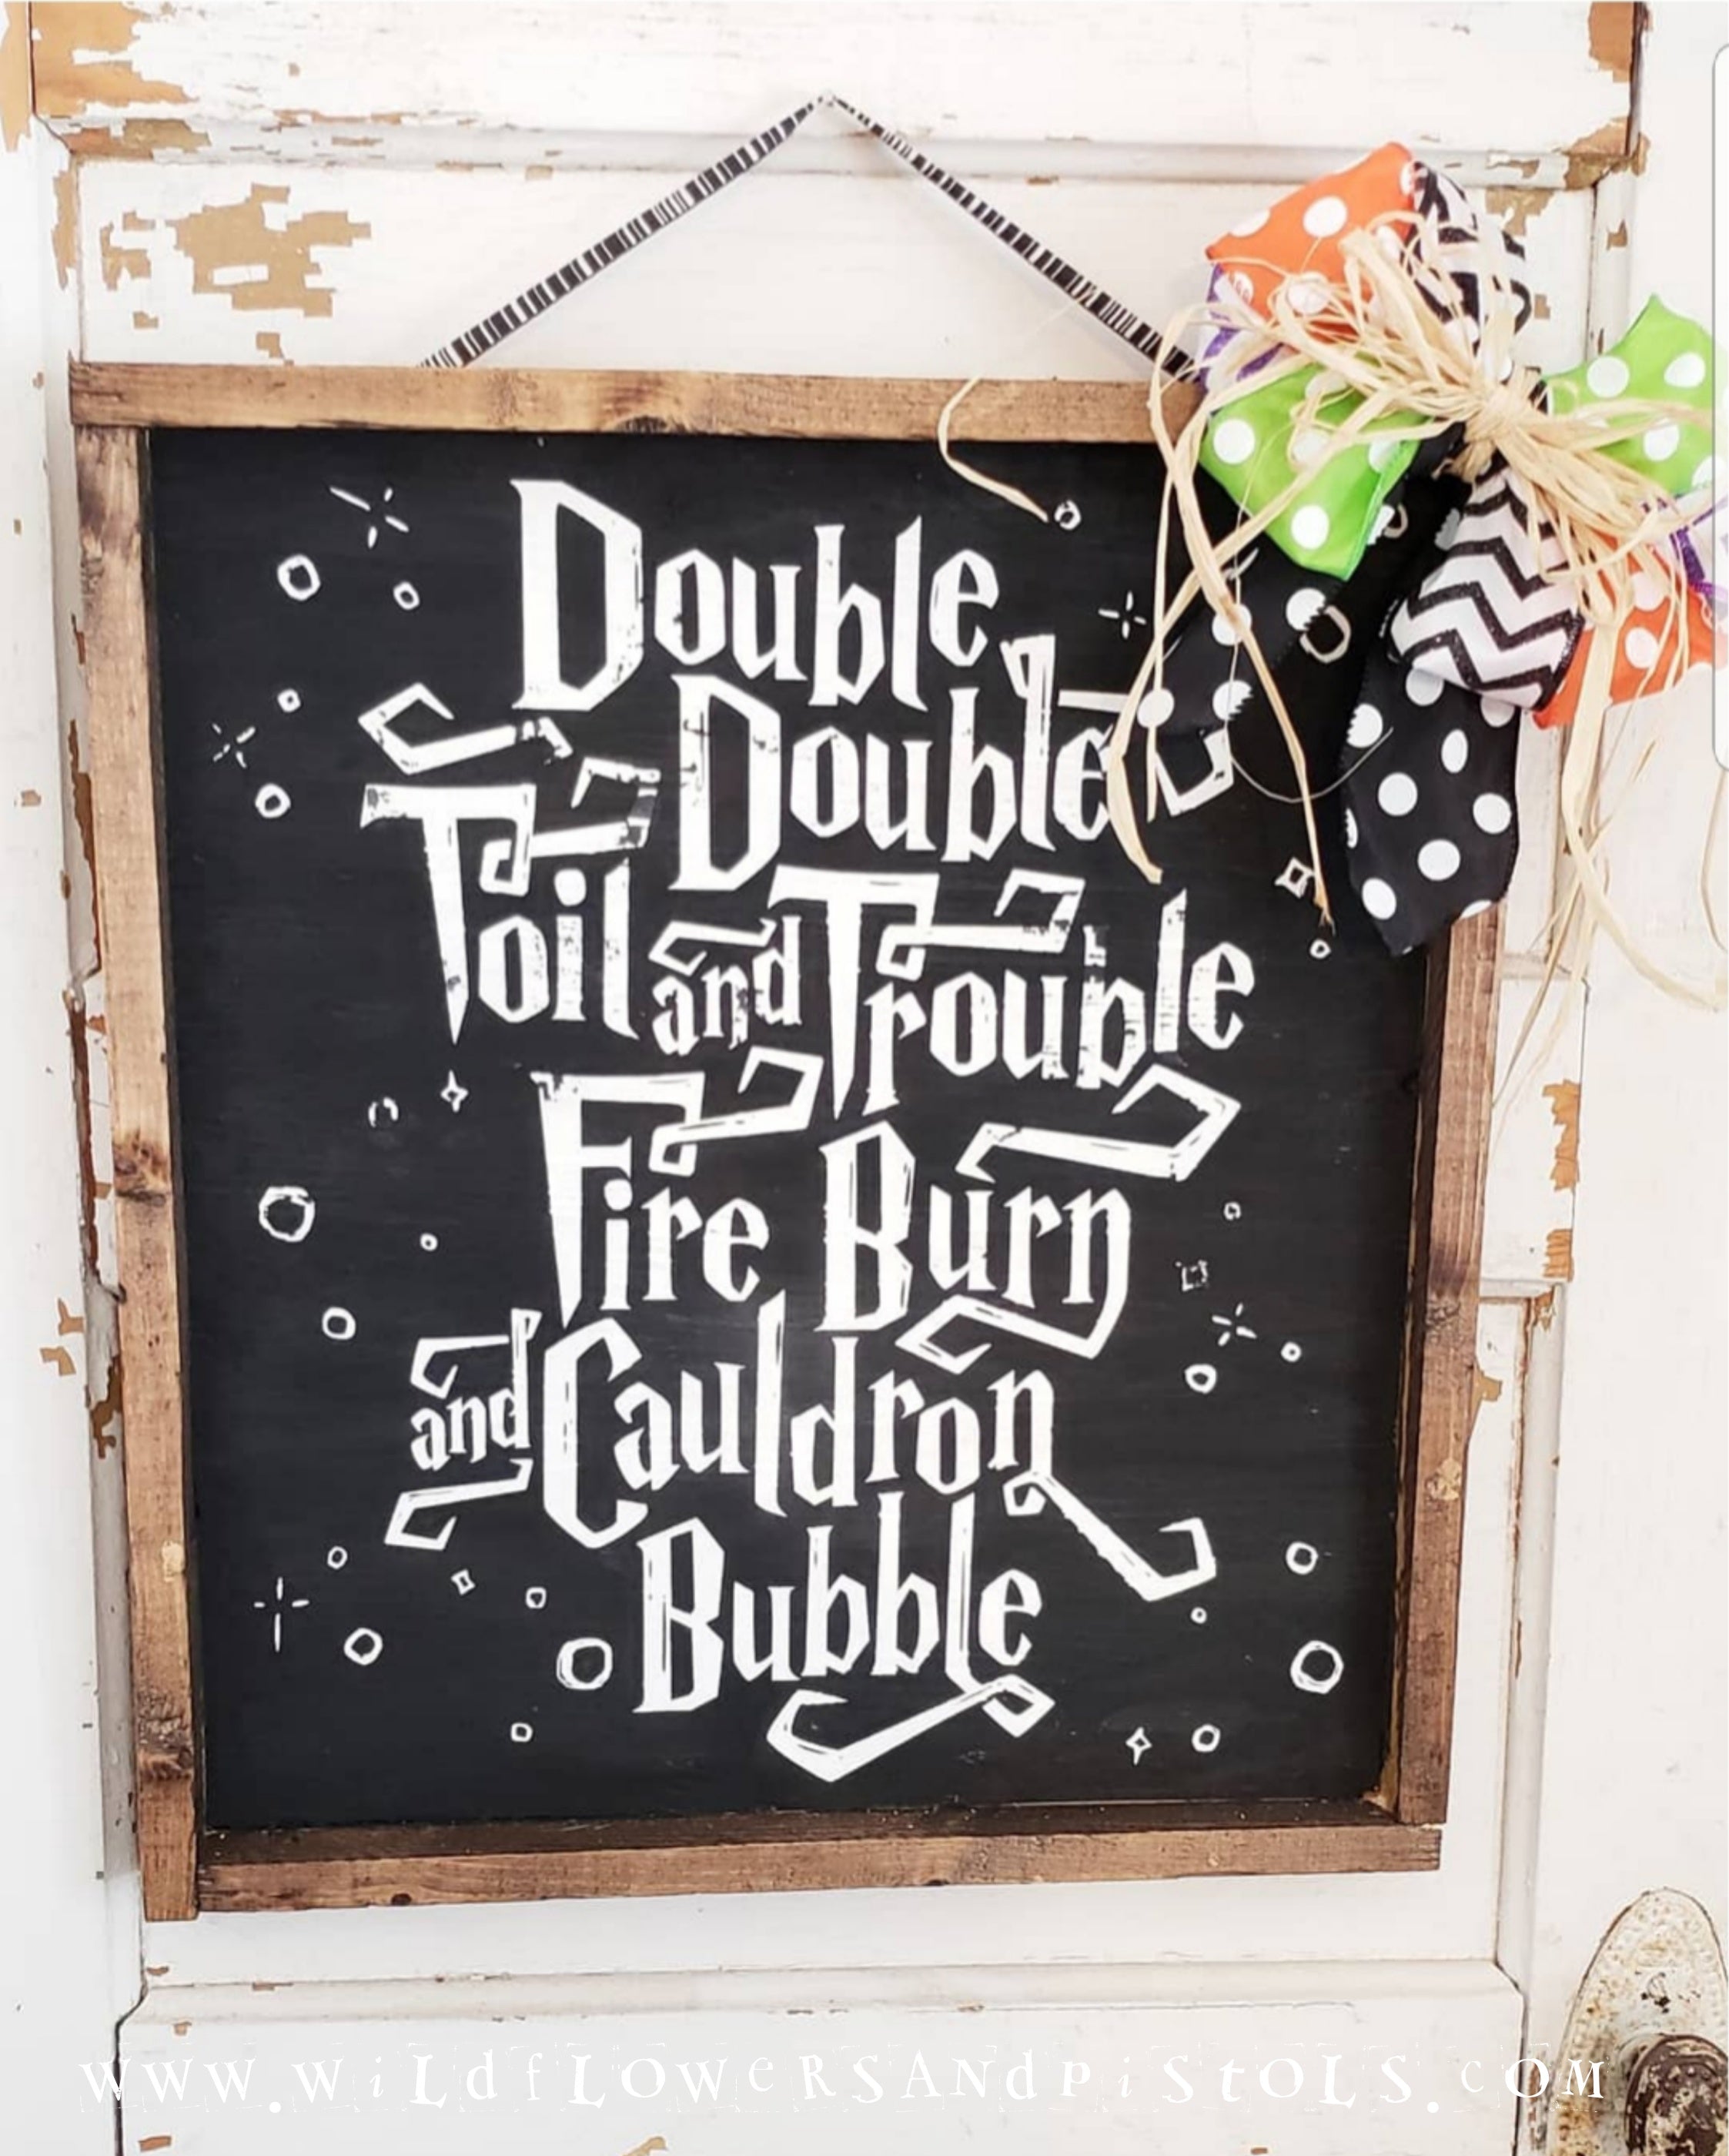 Double
Double
Toil and Trouble
Fire Burn
and Cauldron
Bubble
www.wildfLOWeRSANdPiStOLS.cOM